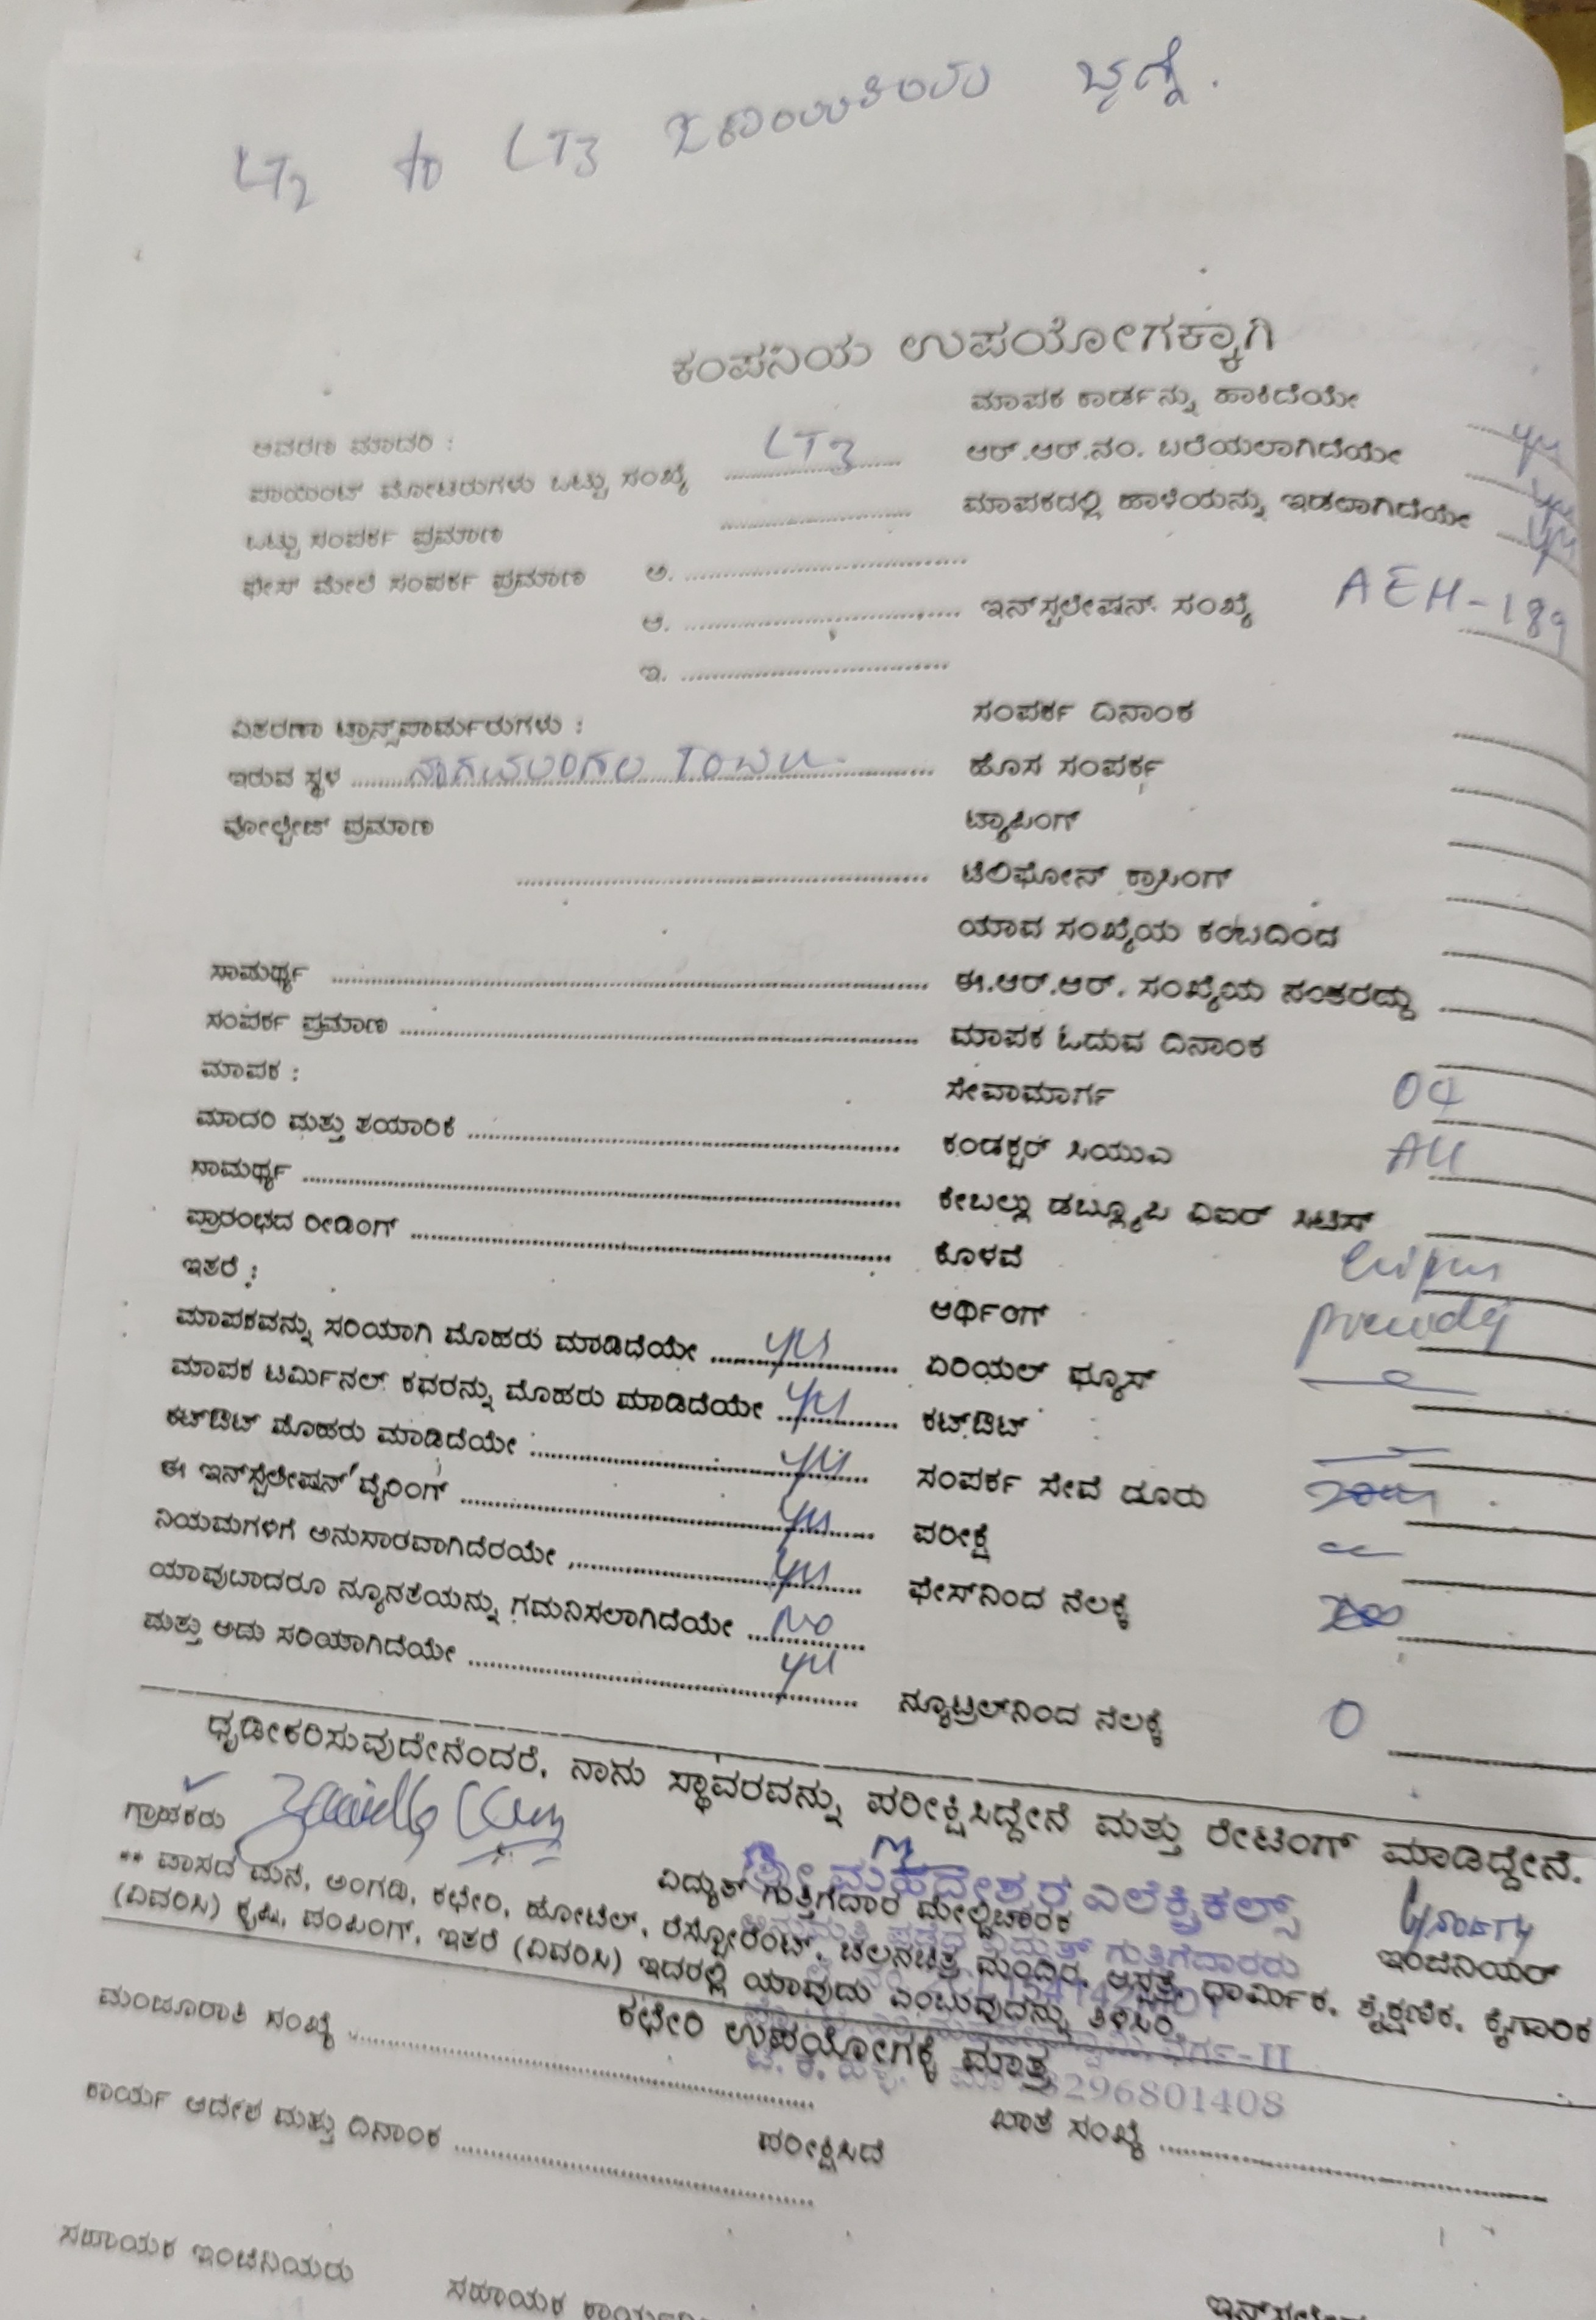 LT2 to LT3
ಕಂಪನಿಯ ಉಪಯೋಗಕ್ಕಾಗಿ
ಮಾಪಕ ಕಾರ್ಡನ್ನು ಹಾಕಿದೆಯೇ yes
ಆವರಣ ಮಾದರಿ : LT3
ಆರ್.ಆರ್.ನಂ. ಬರೆಯಲಾಗಿದೆಯೇ yes
ಪಾಯಿಂಟ್ ಮೋಟರುಗಳು ಒಟ್ಟು ಸಂಖ್ಯೆ
ಮಾಪಕದಲ್ಲಿ ಹಾಳೆಯನ್ನು ಇಡಲಾಗಿದೆಯೇ yes
ಒಟ್ಟು ಸಂಪರ್ಕ ಪ್ರಮಾಣ
ಫೇಸ್ ಮೇಲೆ ಸಂಪರ್ಕ ಪ್ರಮಾಣ ಅ.
ಆ. ಇನ್‌ಸ್ಟಲೇಷನ್ ಸಂಖ್ಯೆ AEH-189
ಇ.
ವಿತರಣಾ ಟ್ರಾನ್ಸ್‌ಫಾರ್ಮರುಗಳು : ಸಂಪರ್ಕ ದಿನಾಂಕ
ಇರುವ ಸ್ಥಳ ನಾಗಮಂಗಲ Town ಹೊಸ ಸಂಪರ್ಕ
ವೋಲ್ಟೇಜ್ ಪ್ರಮಾಣ ಟ್ಯಾಪಿಂಗ್
ಟೆಲಿಫೋನ್ ಕ್ರಾಸಿಂಗ್
ಯಾವ ಸಂಖ್ಯೆಯ ಕಂಬದಿಂದ
ಸಾಮರ್ಥ್ಯ ಈ.ಆರ್.ಆರ್. ಸಂಖ್ಯೆಯ ನಂತರದ್ದು
ಸಂಪರ್ಕ ಪ್ರಮಾಣ ಮಾಪಕ ಓದುವ ದಿನಾಂಕ
ಮಾಪಕ : ಸೇವಾಮಾರ್ಗ
ಮಾದರಿ ಮತ್ತು ತಯಾರಿಕೆ ಕಂಡಕ್ಟರ್ ಸಿಯುಎ
ಸಾಮರ್ಥ್ಯ ಕೇಬಲ್ಲು ಡಬ್ಲ್ಯೂಪಿ ವಿಐಆರ್ ಸಿಟಿಎಸ್
ಪ್ರಾರಂಭದ ರೀಡಿಂಗ್ ಕೊಳವೆ
ಇತರೆ : ಆರ್ಥಿಂಗ್
ಮಾಪಕವನ್ನು ಸರಿಯಾಗಿ ಮೊಹರು ಮಾಡಿದೆಯೇ yes ಏರಿಯಲ್ ಫ್ಯೂಸ್
ಮಾಪಕ ಟರ್ಮಿನಲ್ ಕವರನ್ನು ಮೊಹರು ಮಾಡಿದೆಯೇ yes ಕಟ್‌ಔಟ್
ಕಟ್‌ಔಟ್ ಮೊಹರು ಮಾಡಿದೆಯೇ yes ಸಂಪರ್ಕ ಸೇವೆ ದೂರು
ಈ ಇನ್‌ಸ್ಟಲೇಷನ್ ವೈರಿಂಗ್ yes ಪರೀಕ್ಷೆ
ನಿಯಮಗಳಿಗೆ ಅನುಸಾರವಾಗಿದೆರಯೇ yes ಫೇಸ್‌ನಿಂದ ನೆಲಕ್ಕೆ
ಯಾವುದಾದರೂ ನ್ಯೂನತೆಯನ್ನು ಗಮನಿಸಲಾಗಿದೆಯೇ No
ಮತ್ತು ಅದು ಸರಿಯಾಗಿದೆಯೇ yes ನ್ಯೂಟ್ರಲ್‌ನಿಂದ ನೆಲಕ್ಕೆ 0
ಧೃಡೀಕರಿಸುವುದೇನೆಂದರೆ, ನಾನು ಸ್ಥಾವರವನ್ನು ಪರೀಕ್ಷಿಸಿದ್ದೇನೆ ಮತ್ತು ರೇಟಿಂಗ್ ಮಾಡಿದ್ದೇನೆ.
ಗ್ರಾಹಕರು
ಶ್ರೀ ಮಹದೇಶ್ವರ ಎಲೆಕ್ಟ್ರಿಕಲ್ಸ್
ವಿದ್ಯುತ್ ಗುತ್ತಿಗೆದಾರ ಮೇಲ್ವಿಚಾರಕ ಇಂಜಿನಿಯರ್
** ವಾಸದ ಮನೆ, ಅಂಗಡಿ, ಕಛೇರಿ, ಹೋಟೆಲ್, ರೆಸ್ಟೋರೆಂಟ್, ಚಲನಚಿತ್ರ ಮಂದಿರ, ಆಸ್ಪತ್ರೆ, ಧಾರ್ಮಿಕ, ಶೈಕ್ಷಣಿಕ, ಕೈಗಾರಿಕ
(ವಿವರಿಸಿ) ಕೃಷಿ, ಪಂಪಿಂಗ್, ಇತರೆ (ವಿವರಿಸಿ) ಇದರಲ್ಲಿ ಯಾವುದು ಎಂಬುವುದನ್ನು ತಿಳಿಸಿರಿ.
ಕಛೇರಿ ಉಪಯೋಗಕ್ಕೆ ಮಾತ್ರ
8296801408
ಮಂಜೂರಾತಿ ಸಂಖ್ಯೆ ಖಾತೆ ಸಂಖ್ಯೆ
ಕಾರ್ಯ ಆದೇಶ ಮತ್ತು ದಿನಾಂಕ ಪರೀಕ್ಷಿಸಿದೆ
ಸಹಾಯಕ ಇಂಜಿನಿಯರು ಸಹಾಯಕ